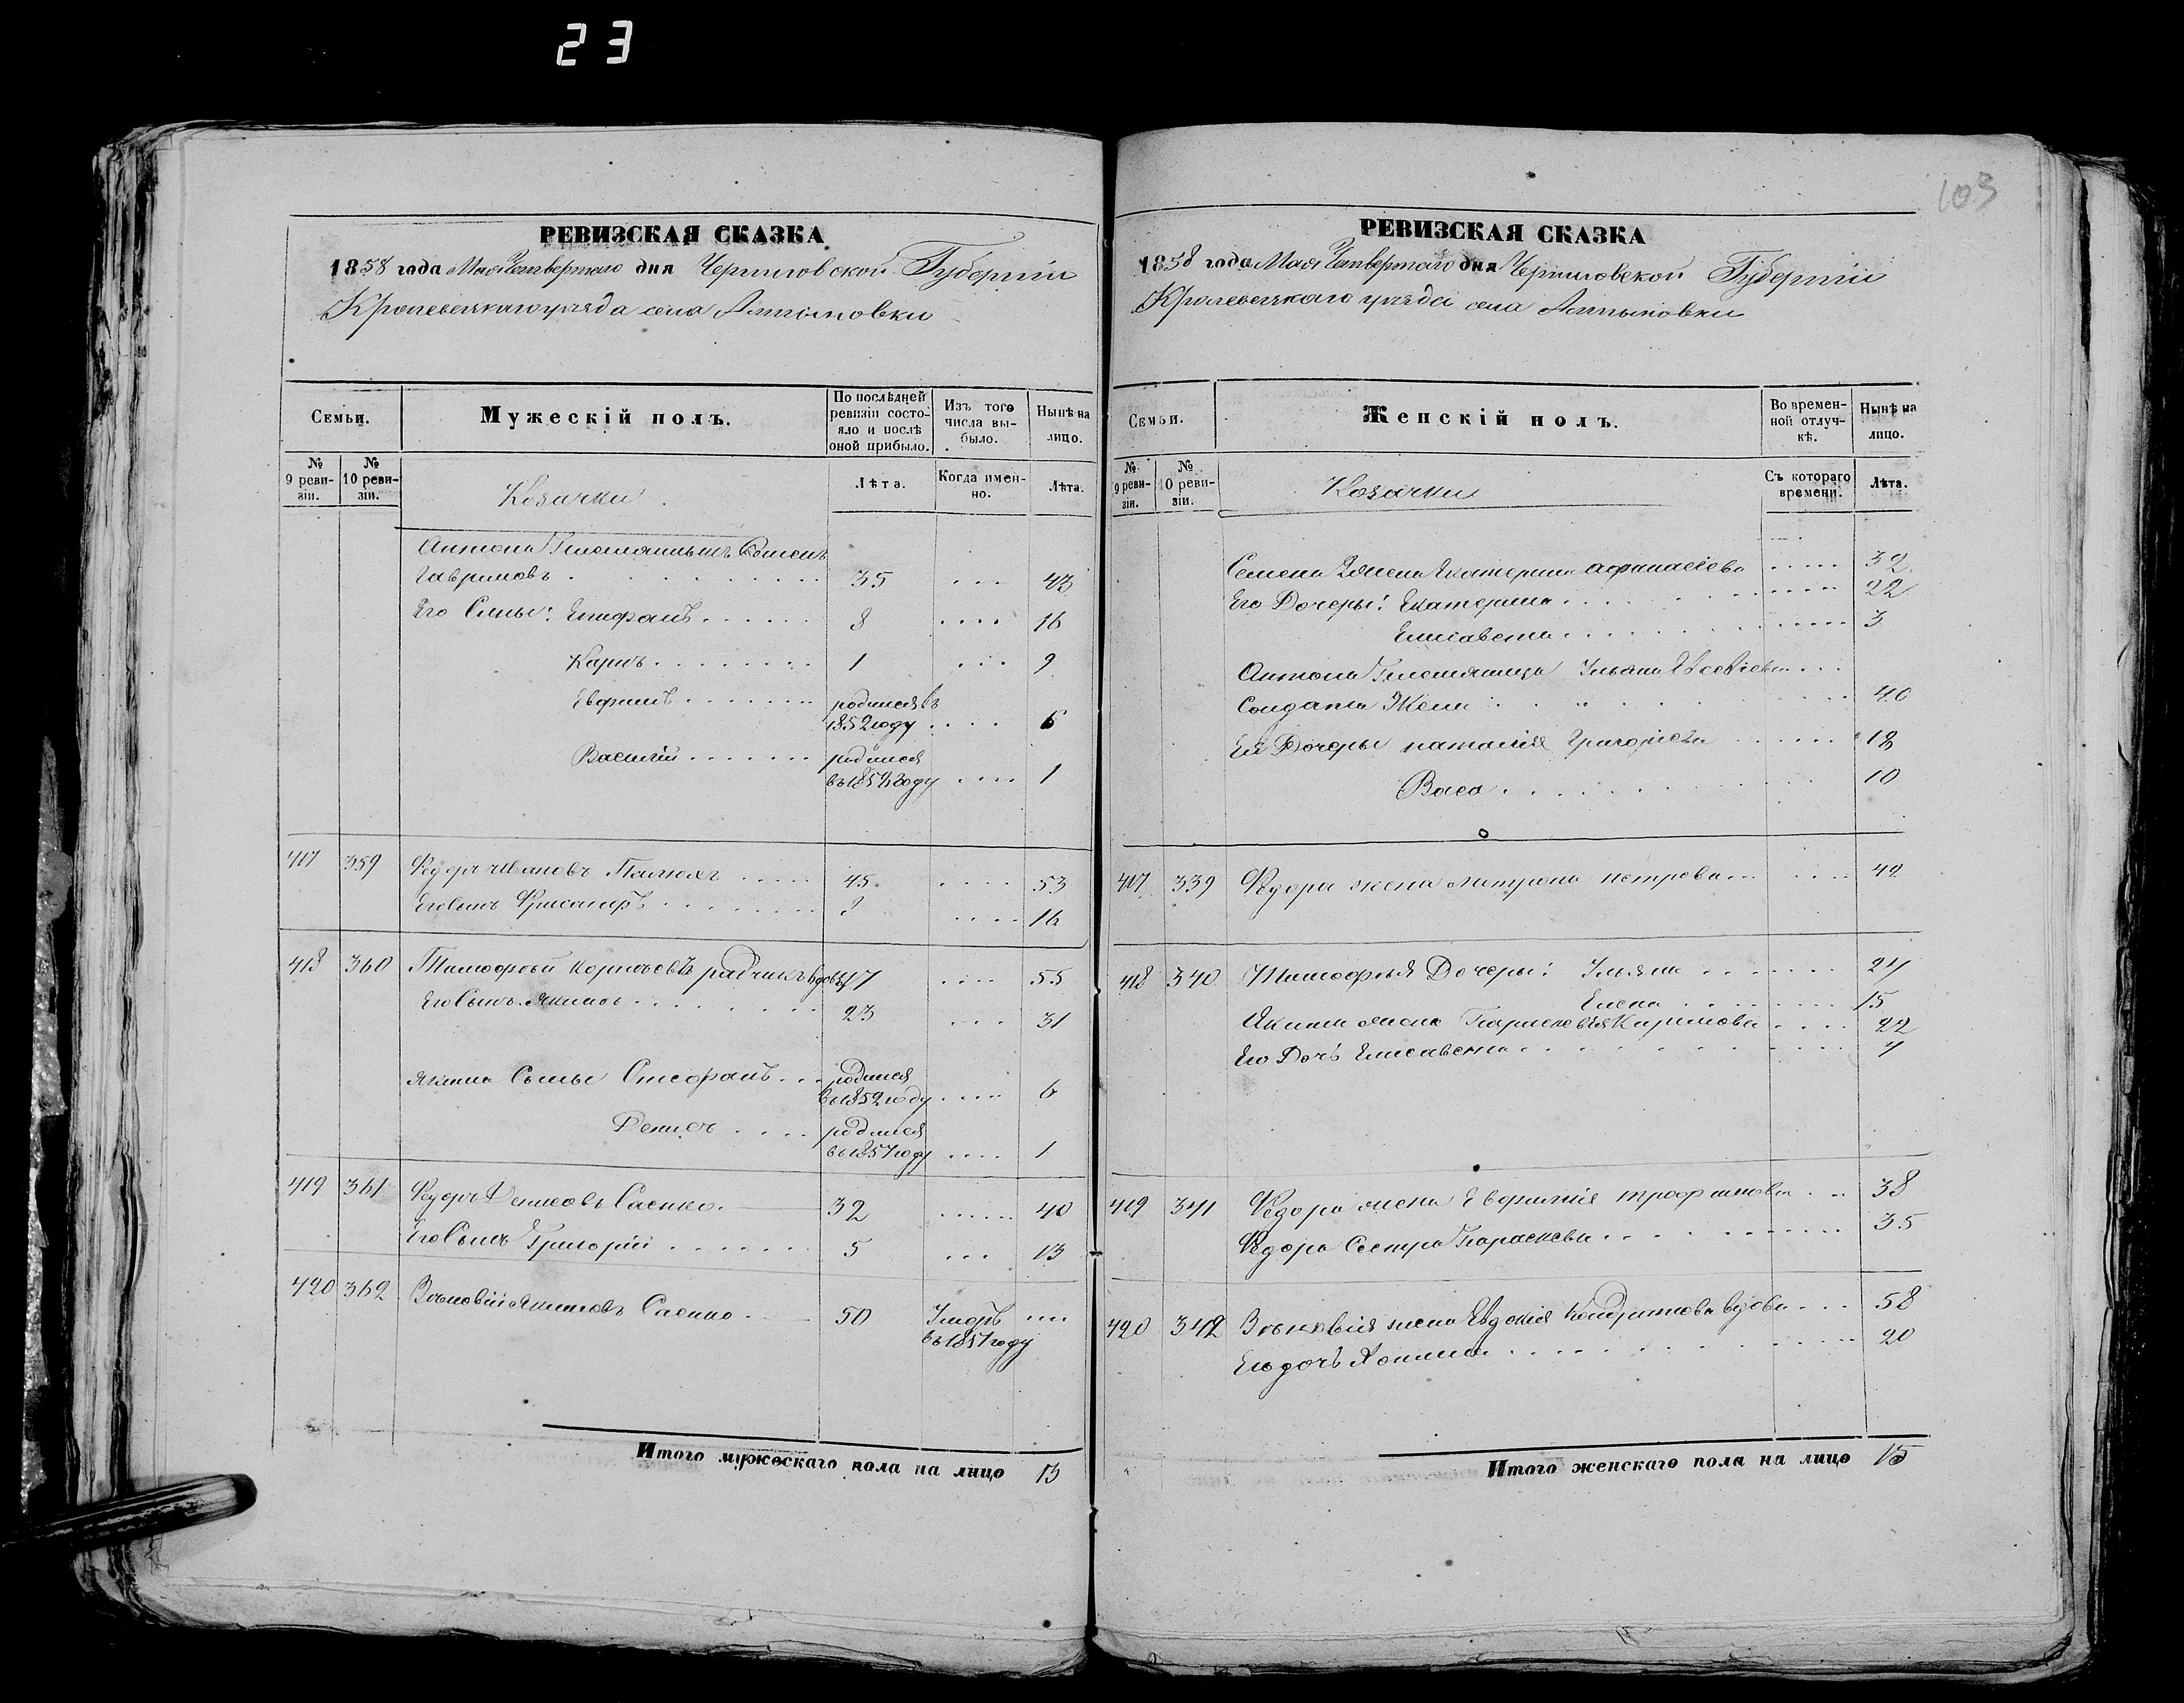 23
103
РЕВИЗСКАЯ СКАЗКА
1858 года Мая Четвертаго дня Черниговской Губерніи
Кролевецкаго уезда села Алтыновки
Семьи. Мужескій полъ. По послѣдней ревизіи состояло и послѣ оной прибыло. Изъ того числа выбыло. Нынѣ на лицо.
№ 9 ревизіи. № 10 ревизіи. Козачки Лѣта. Когда именно. Лѣта.
Антона Племянникъ Семенъ
Гавриловъ 35 43
Его Сыны: Епифанъ 8 16
Карпъ 1 9
Евфимъ родился въ
1852 году 6
Василій родился
въ 1857 году 1
417 359 Федоръ Ивановъ 45 53
Его Сынъ 8 16
418 360 Тимофей вдовъ 47 55
Его Сынъ Якимъ 23 31
Якима Сыны Стефанъ родился
въ 1852 году 6
Денисъ родился
въ 1857 году 1
419 361 Федоръ Денисовъ Саенко 32 40
Его Сынъ Григорій 5 13
420 362 Зѣновій Якимовъ Саенко 50 Умеръ
въ 1857 году
Итого мужескаго пола на лицо 13
РЕВИЗСКАЯ СКАЗКА
1858 года Мая Четвертаго дня Черниговской Губерніи
Кролевецкаго уезда села Алтыновки
Семьи. Женскій полъ. Во временной отлучкѣ. Нынѣ на лицо.
№ 9 ревизіи. № 10 ревизіи. Козачки Съ котораго времени. Лѣта.
Семена Жена Екатерина Афанасіева 32
Его Дочеры: Екатерина 22
Елисавета 3
Антона Племянница Ульяна
Солдатка Жена 40
Ея Дочеры наталія Григоріева 18
Васа 10
417 339 Федора жена Матрона петрова 42
418 340 Тимофея Дочеры: Ульяна
Елена 15
Якима жена Парасковія Кирилова 22
Его Дочь Елисавета
419 341 Федора жена Евфимія трофимова 38
Федора Сестра Параскева 35
420 342 Зѣновія жена Евдокія Кондратова вдова 58
Его дочь 20
Итого женскаго пола на лицо 15